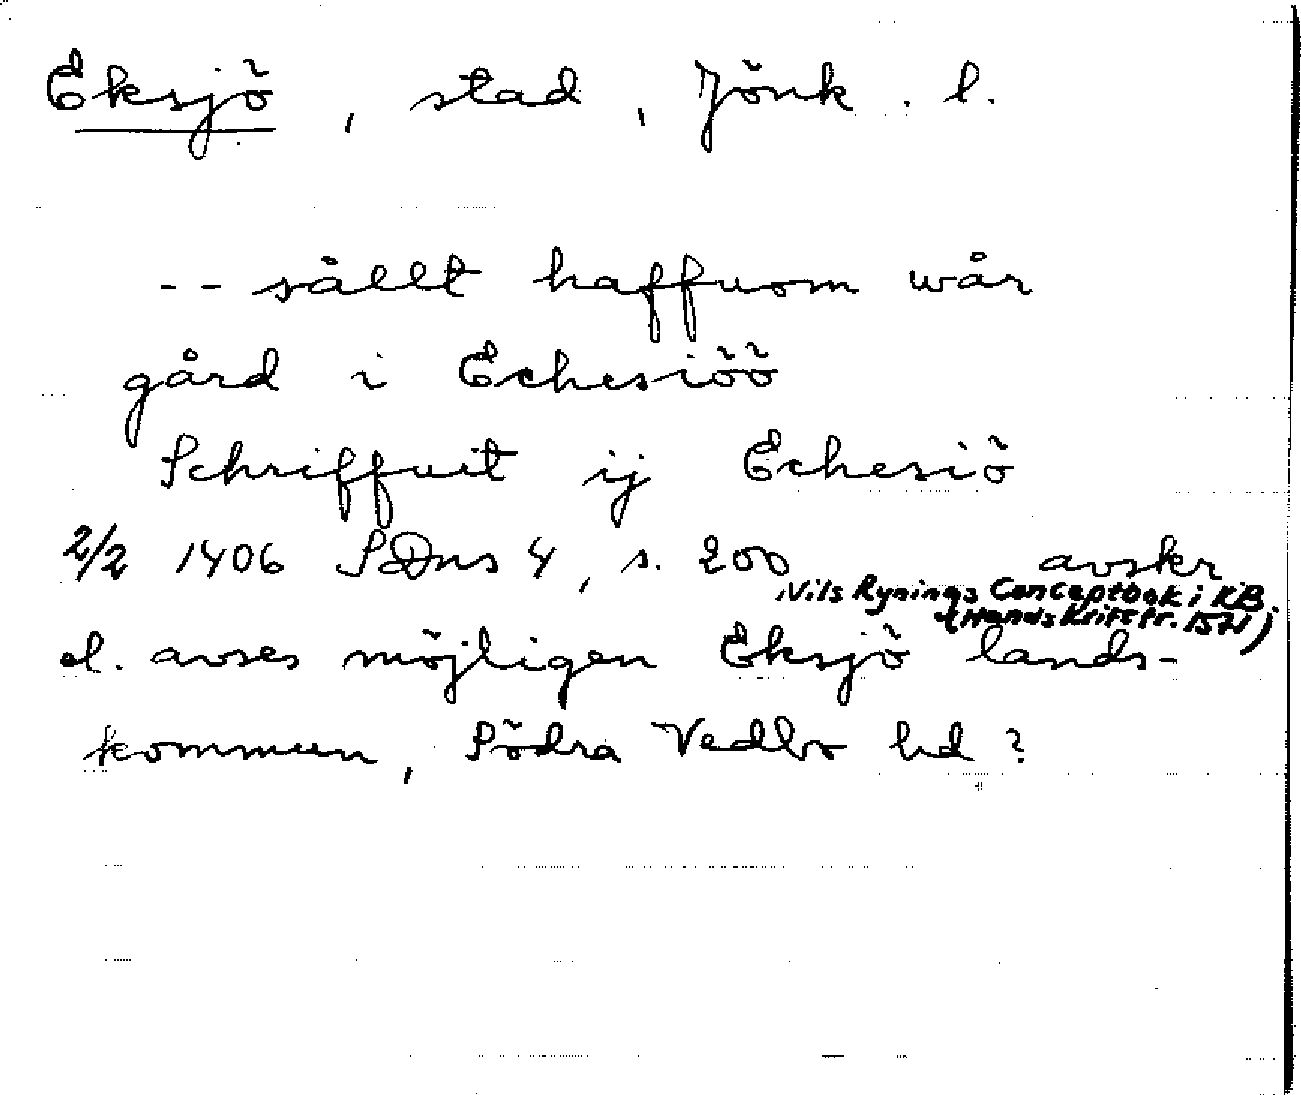 Eksjö, stad, Jönk. l.
-- sållt haffuom wår
gård i Echesiöö
Schriffuit ij Echesiö
2/2 1406 SDns 4, s. 200 avskr
Nils Rynings Conceptbok i KB.
(Handskriftfr. 1571)
el. avses möjligen Eksjö lands-
kommun, Södra Vedbo hd?